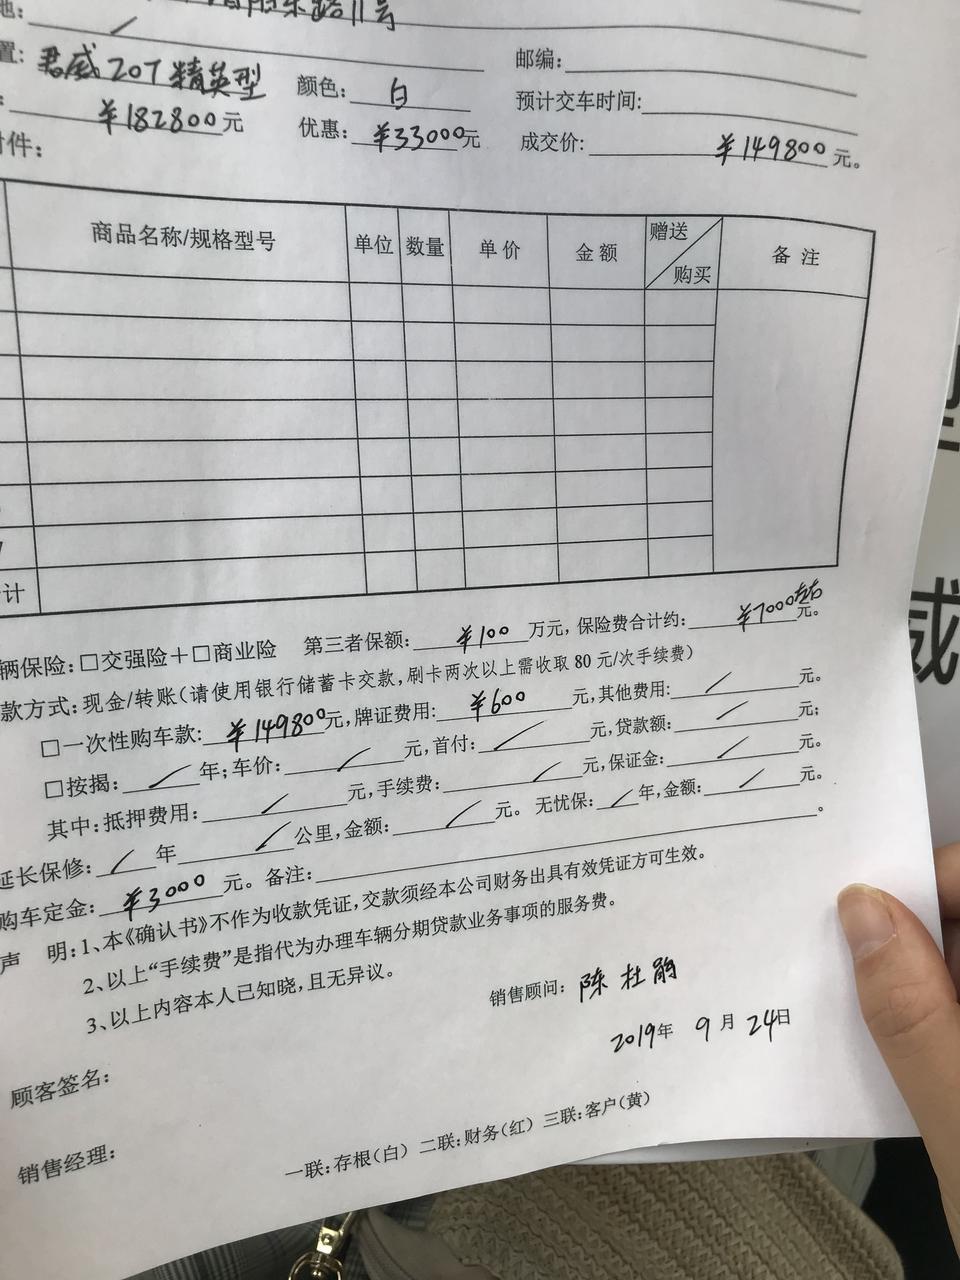 地: 东路11号
置: 君威20T精英型 颜色: 白 邮编:
预计交车时间:
: ¥182800元 优惠: ¥33000元 成交价: ¥149800元。
附件:
商品名称/规格型号 单位 数量 单价 金额 赠送 购买 备注
计
辆保险: □交强险+□商业险 第三者保额: ¥100万元, 保险费合计约: ¥7000左右元。
款方式: 现金/转账(请使用银行储蓄卡交款, 刷卡两次以上需收取80元/次手续费)
□一次性购车款: ¥149800元, 牌证费用: ¥600元, 其他费用: /元。
□按揭: /年; 车价: /元, 首付: /元, 贷款额: /元;
其中: 抵押费用: /元, 手续费: /元, 保证金: /元。
延长保修: /年 /公里, 金额: /元。 无忧保: /年, 金额: /元。
购车定金: ¥3000元。备注: 。
声 明: 1、本《确认书》不作为收款凭证, 交款须经本公司财务出具有效凭证方可生效。
2、以上“手续费”是指代为办理车辆分期贷款业务事项的服务费。
3、以上内容本人已知晓, 且无异议。
销售顾问: 陈杜鹃
2019年 9月 24日
顾客签名:
销售经理:
一联: 存根(白) 二联: 财务(红) 三联: 客户(黄)
威